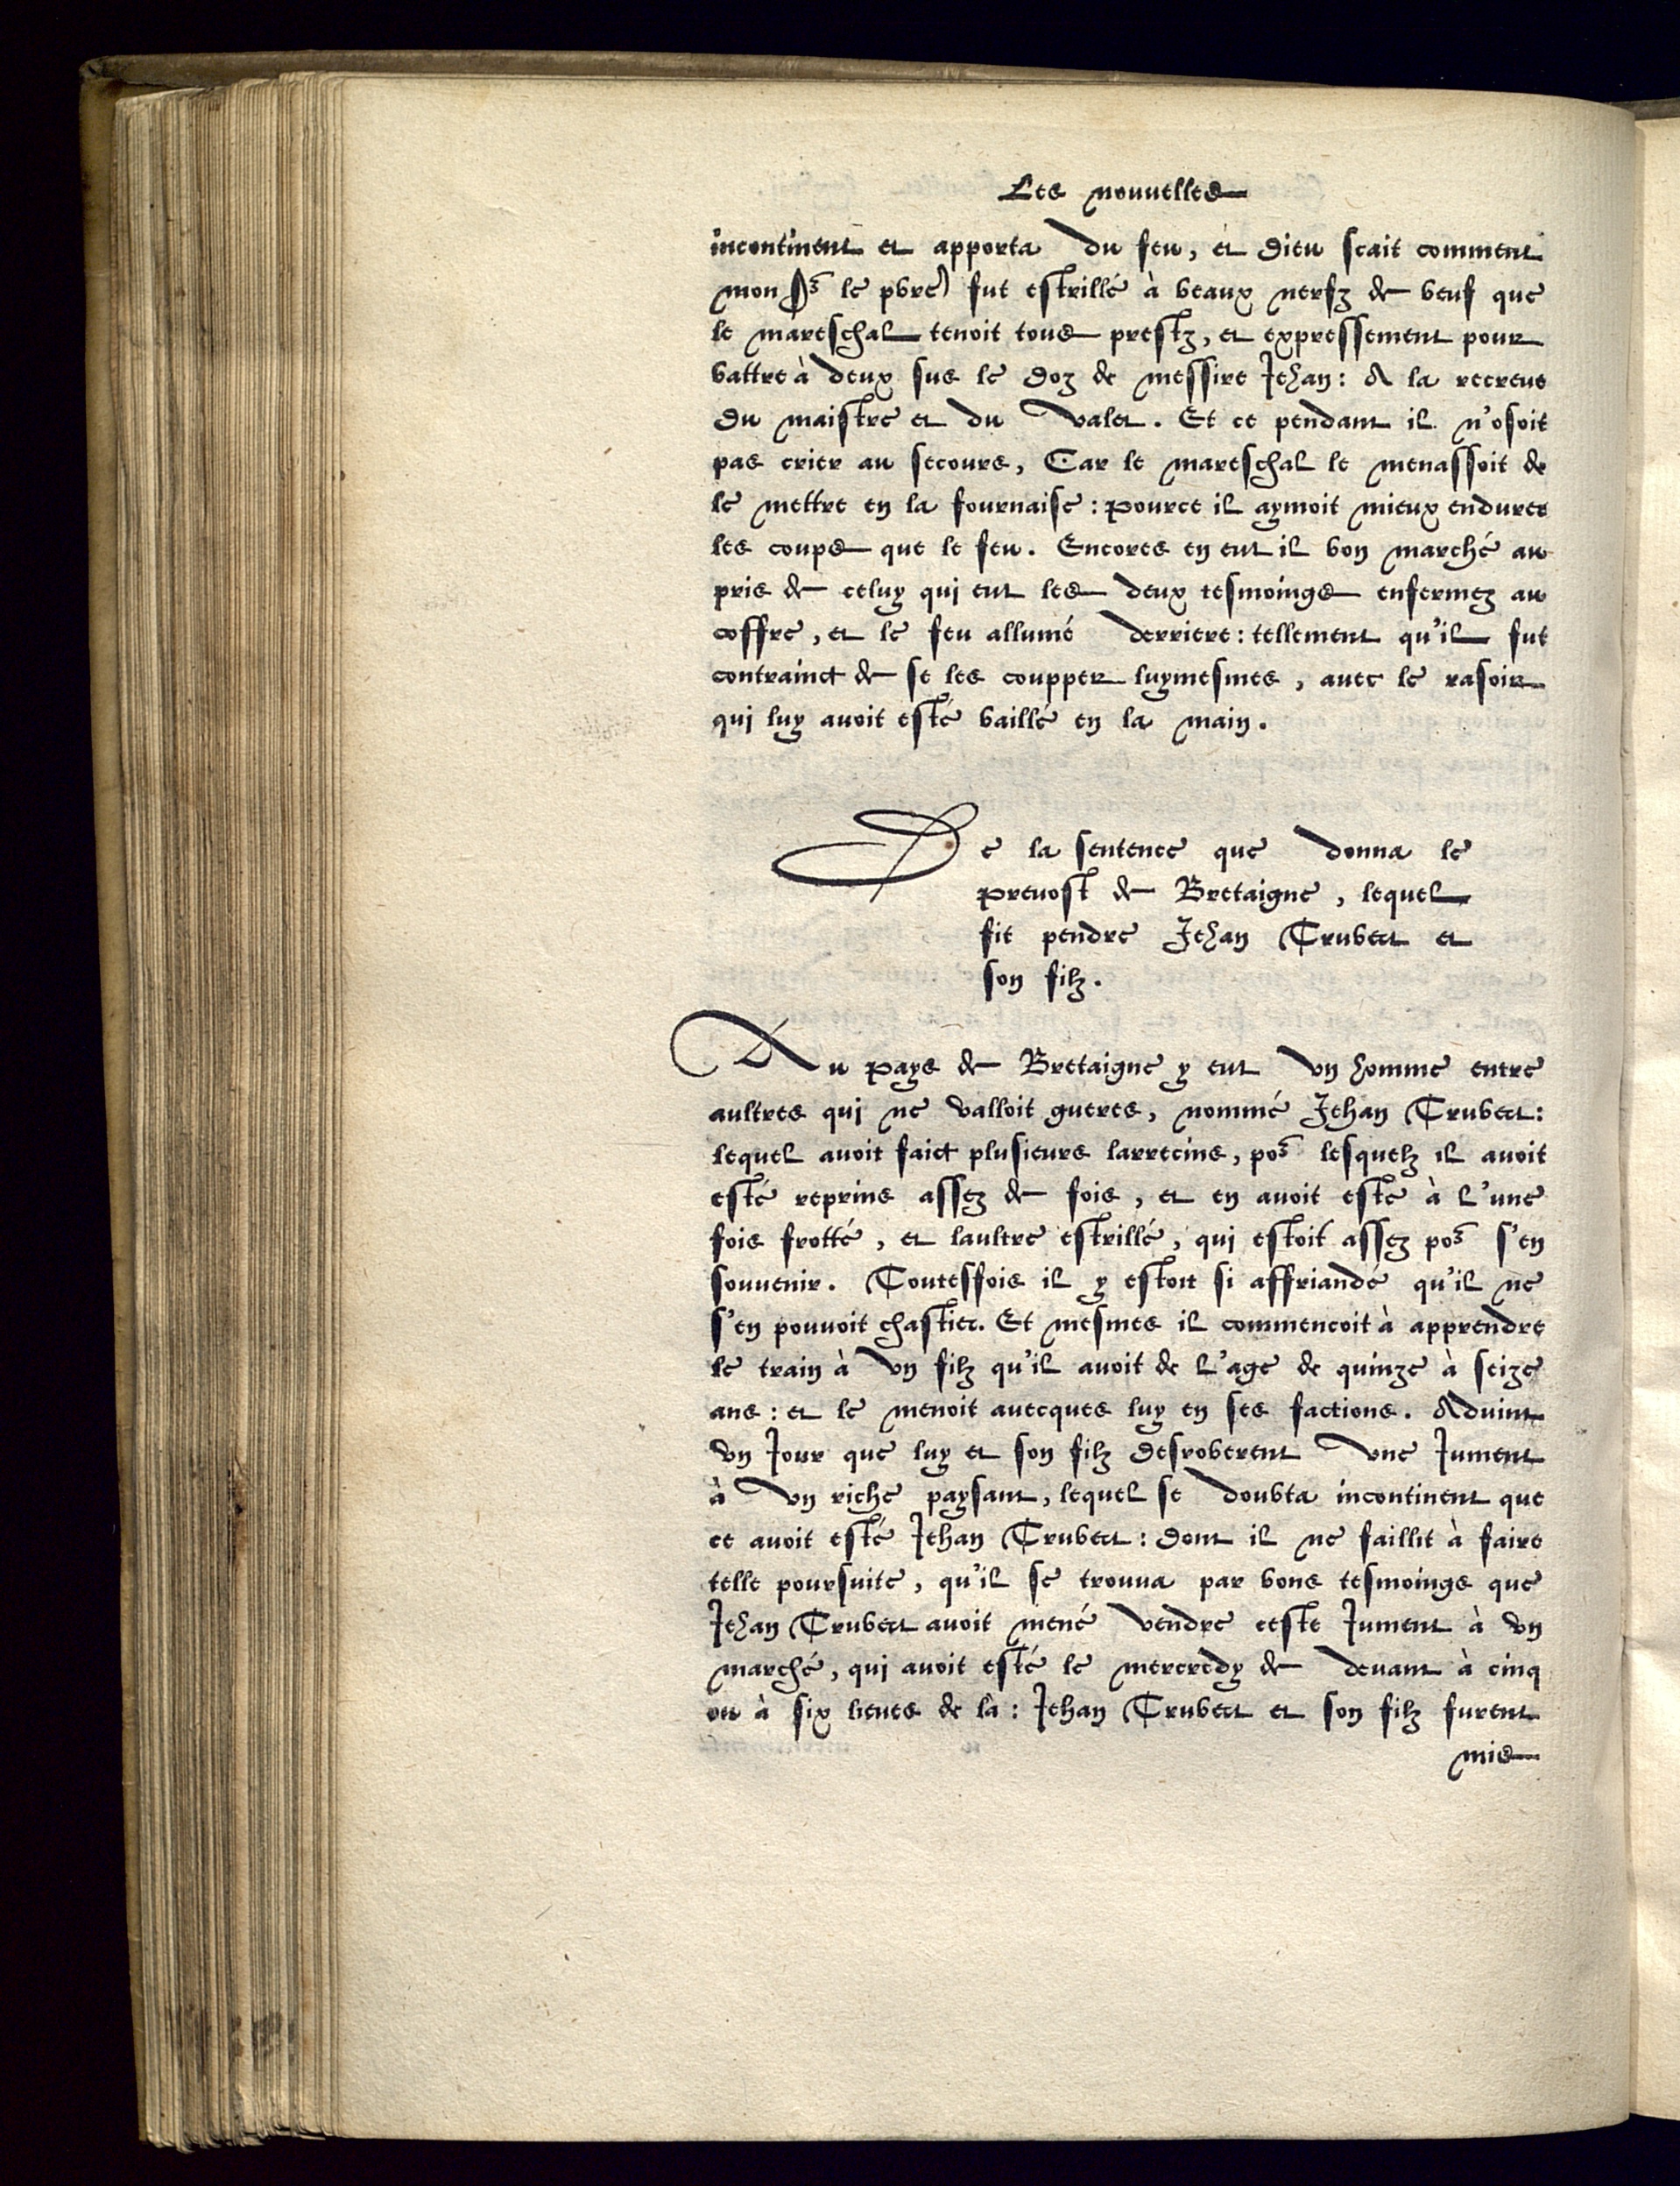 Les nouuelles
incontinent et apporta du feu, et Dieu scait comment
mon Sʳ le pbre fut estrillé à beaux nerfz de beuf que
le mareschal tenoit tous prestz, et expressement pour
battre à deux sus le doz de messire Jehan: A la recreue
du maistre et du valet. Et ce pendant il n'osoit
pas crier au secours, Car le mareschal le menassoit de
le mettre en la fournaise: pource il aymoit mieux endurer
les coups que le feu. Encores en eut il bon marché au
pris de celuy qui eut les deux tesmoings enfermez au
coffre, et le feu allumé derriere: tellement qu'il fut
contrainct de se les coupper luymesmes, auec le rasoir
qui luy auoit esté baillé en la main.
De la sentence que donna le
preuost de Bretaigne, lequel
fit pendre Jehan Trubert et
son filz.
Au pays de Bretaigne y eut vn homme entre
aultres qui ne valloit gueres, nommé Jehan Trubert:
lequel auoit faict plusieurs larrecins, poʳ lesquelz il auoit
esté reprins assez de fois, et en auoit esté à l'une
fois frotté, et laultre estrillé, qui estoit assez poʳ s'en
souuenir. Toutesfois il y estoit si affriandé qu'il ne
s'en pouuoit chastier. Et mesmes il commencoit à apprendre
le train à vn filz qu'il auoit de l'age de quinze à seize
ans: et le menoit auecques luy en ses factions. Aduint
vn Jour que luy et son filz desroberent vne Jument
à vn riche paysant, lequel se doubta incontinent que
ce auoit esté Jehan Trubert: dont il ne faillit à faire
telle poursuite, qu'il se trouua par bons tesmoings que
Jehan Trubert auoit mené vendre ceste Jument à vn
marché, qui auoit esté le mercredy de deuant à cinq
ou à six lieues de là: Jehan Trubert et son filz furent
mis